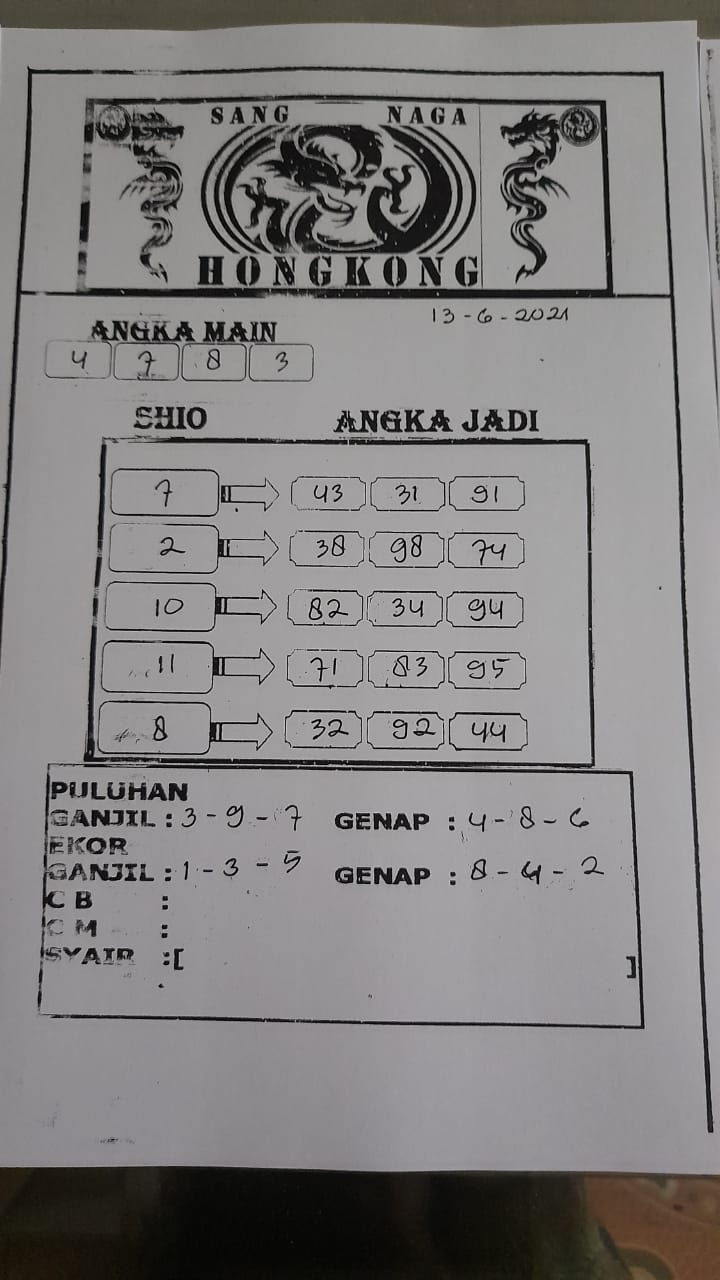 SANG NAGA
HONGKONG
13-6-2021
ANGKA MAIN
4 7 8 3
SHIO ANGKA JADI
7 43 31 91
2 38 98 74
10 82 34 94
11 71 83 95
8 32 92 44
PULUHAN
GANJIL : 3-9-7 GENAP : 4-8-6
EKOR
GANJIL : 1-3-5 GENAP : 8-4-2
C B :
C M :
SYAIR :[ ]